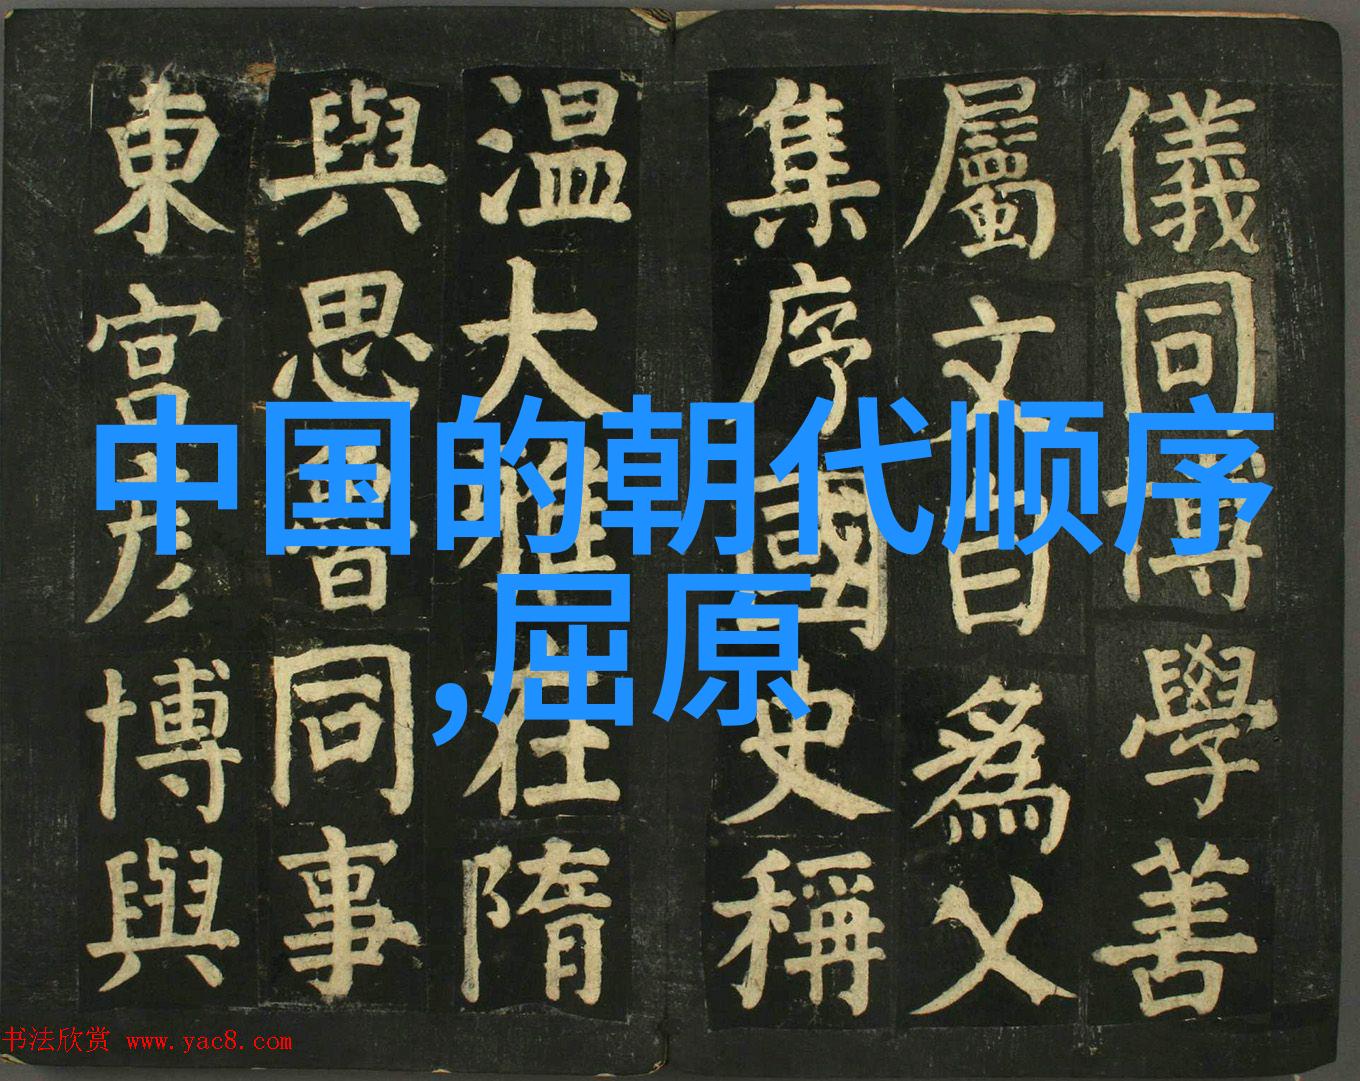 儀同博學善
屬文自為父
集序國史稱
温大雅在隋
與思魯同事
東宫彦博與
中国的朝代顺序
,屈原
书法欣赏 www.yac8.com